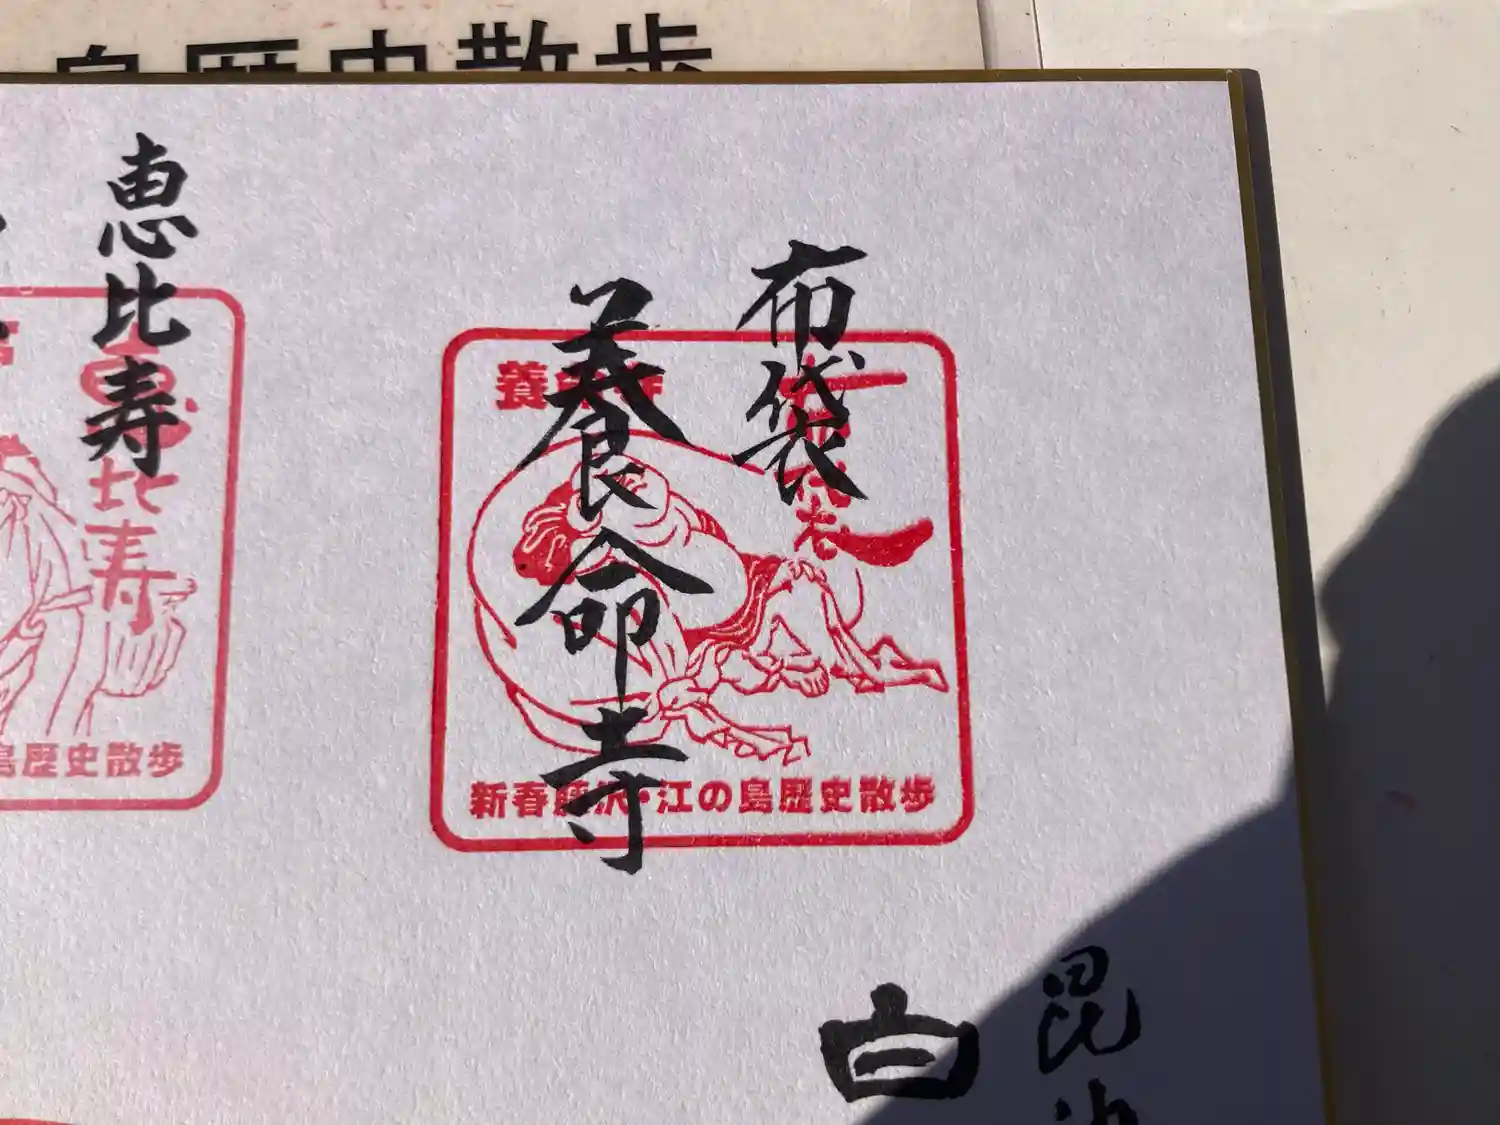 島歴史散歩
布袋
養命寺
養命寺
布袋
新春藤沢・江の島歴史散歩
恵比寿
恵比寿
島歴史散歩
毘沙
白